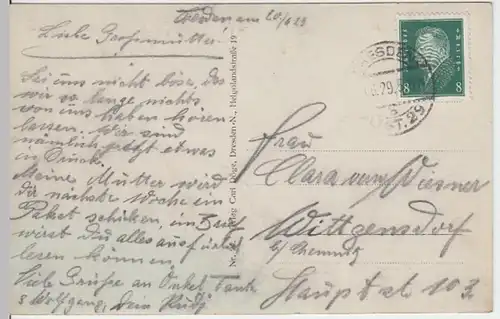 Dresden am 20/6 29
Liebe Großmutter
Sei uns nicht böse, das
wir so lange nichts
von uns haben hören
lassen. Wir sind
nämlich jetzt etwas
in Druck.
Meine Mutter wird
dir nächste Woche ein
Paket schicken, im Brief
wirst Du alles ausführlich
lesen können,
Viele Grüße an Onkel Tante
u Wolfgang, Dein Rudi
Verlag Carl Döge, Dresden-N., Helgolandstraße 19
DRESDEN
8 8
Frau
Clara verw. Wiesner
Wittgensdorf
b/ Chemnitz
Hauptstr 103